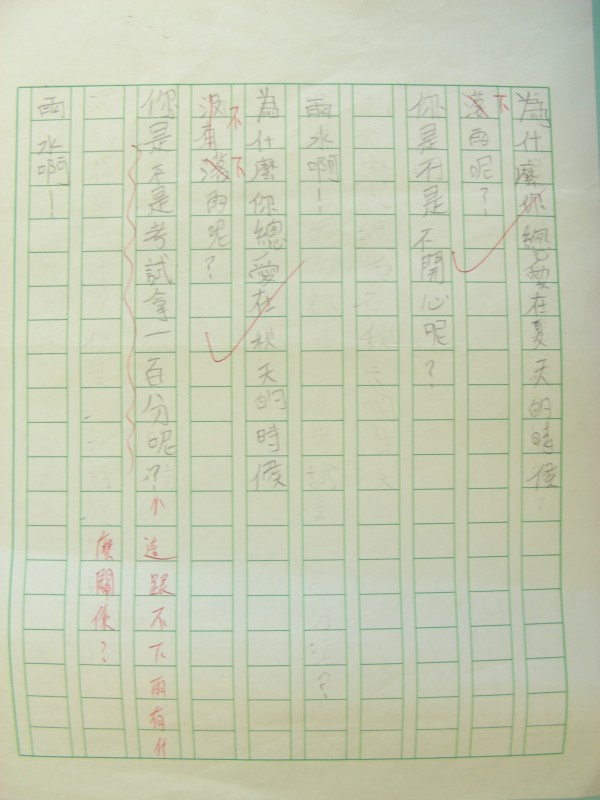 為什麼你總愛在夏天的時候
落下雨呢？
你是不是不開心呢？
雨水啊！
為什麼你總愛在秋天的時候
沒有不落下雨呢？
你是不是考試拿一百分呢？
這跟不下雨有什
麼關係？
雨水啊！